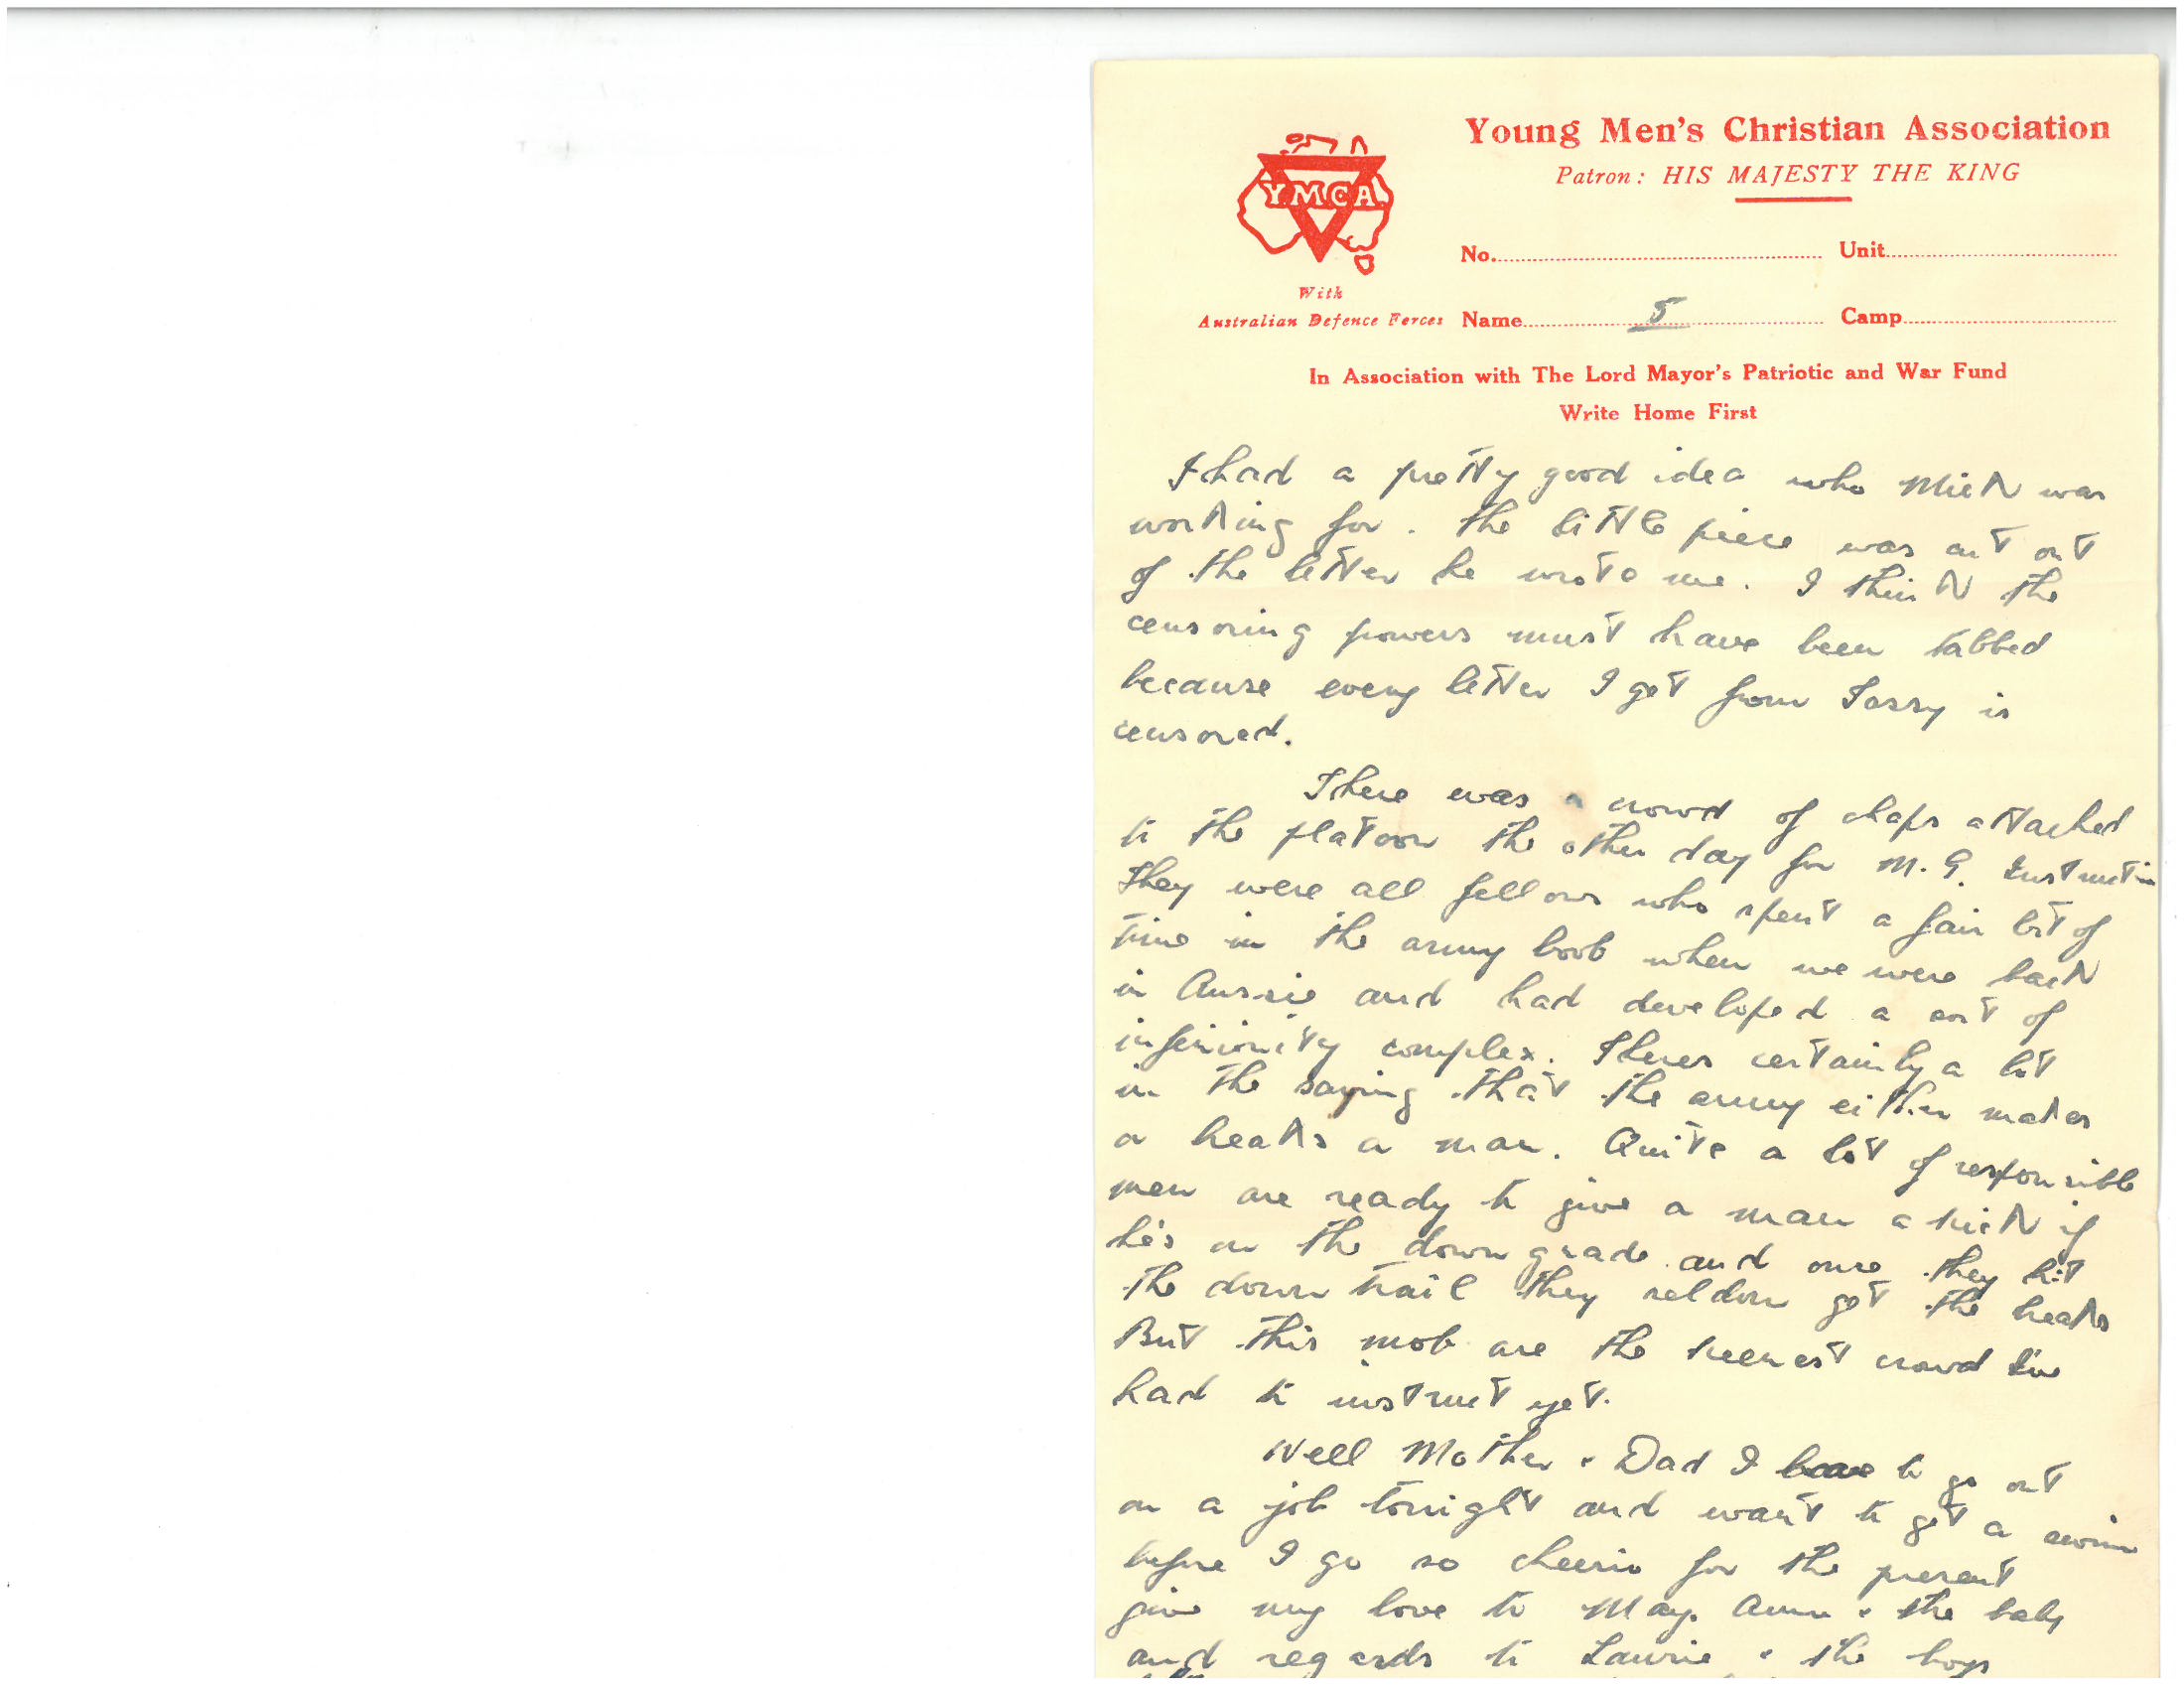 Young Men's Christian Association
Patron: HIS MAJESTY THE KING
Y.M.C.A.
No. Unit
With
Australian Defence Forces Name 5 Camp
In Association with The Lord Mayor's Patriotic and War Fund
Write Home First
I had a pretty good idea who Mick was
working for. The little piece was cut out
of the letter he wrote me. I think the
censoring powers must have been tabbed
because every letter I get from Tassy is
censored.
There was a crowd of chaps attached
to the platoon the other day for M.G. Instruction
They were all fellows who spent a fair bit of
time in the army boob when we were back
in Aussie and had developed a sort of
inferiority complex. Theres certainly a lot
in the saying that the army either makes
or breaks a man. Quite a lot of responsible
men are ready to give a man a kick if
he's on the down grade and once they hit
the down trail they seldom get the breaks
But this mob are the keenest crowd I've
had to instruct yet.
Well Mother & Dad I have to go out
on a job tonight and want to get a swim
before I go so cheerio for the present
give my love to May. Ann & the baby
and regards to Laurie & the boys